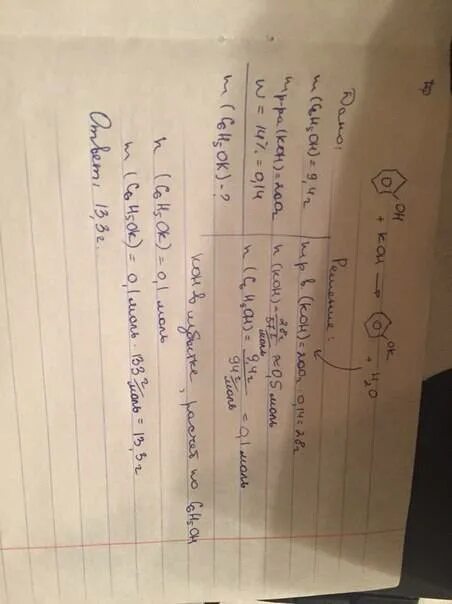 OH
OK
+ KOH → + H₂O
Дано:
m(C₆H₅OH) = 9,4г
mр-ра(KOH) = 200г
W = 14% = 0,14
m(C₆H₅OK) - ?
Решение:
mр.в (KOH) = 200г · 0,14 = 28г
n(KOH) = 28г / 57 г/моль ≈ 0,5 моль
n(C₆H₅OH) = 9,4г / 94 г/моль = 0,1 моль
KOH в избытке, расчёт по C₆H₅OH
n (C₆H₅OK) = 0,1 моль
m (C₆H₅OK) = 0,1 моль · 133 г/моль = 13,3 г
Ответ: 13,3 г.